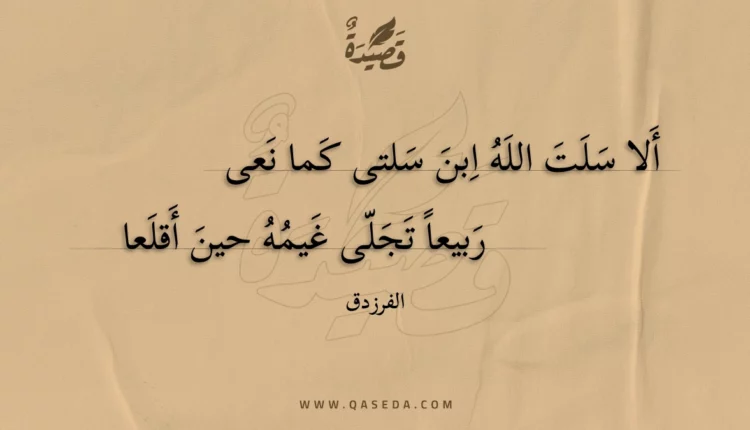 قَصِيدَةٌ
أَلا سَلَتَ اللَهُ اِبنَ سَلتى كَما نَعى
رَبيعاً تَجَلّى غَيمُهُ حينَ أَقلَعا
الفرزدق
WWW.QASEDA.COM